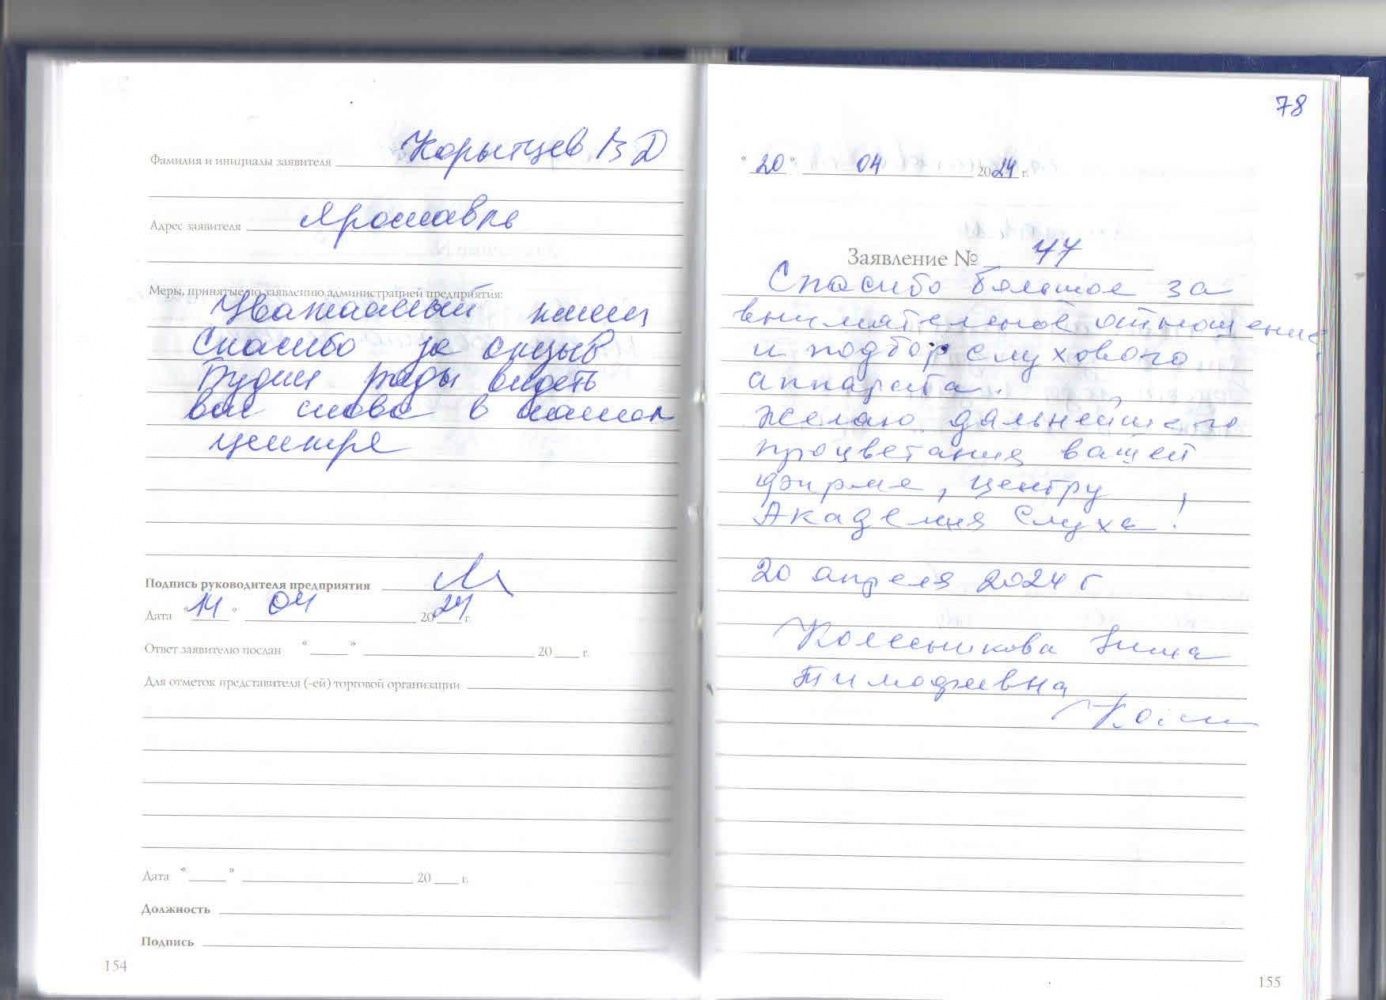 Фамилия и инициалы заявителя Корытцев В Д
Адрес заявителя Ярославль
Меры, принятые по заявлению администрацией предприятия:
Уважаемый клиент
Спасибо за отзыв
Будем рады видеть
вас снова в нашем
центре
Подпись руководителя предприятия
Дата "14" 04 2024 г.
Ответ заявителю послан "___" ___ 20 ___ г.
Для отметок представителя (-ей) торговой организации
Дата "___" ___ 20 ___ г.
Должность
Подпись
154
78
"20" 04 2024 г.
Заявление № 77
Спасибо большое за
внимательное отношение
и подбор слухового
аппарата.
Желаю дальнейшего
процветания вашей
фирме, центру
Академия Слуха!
20 апреля 2024 г
Колесникова Нина
Тимофеевна
155